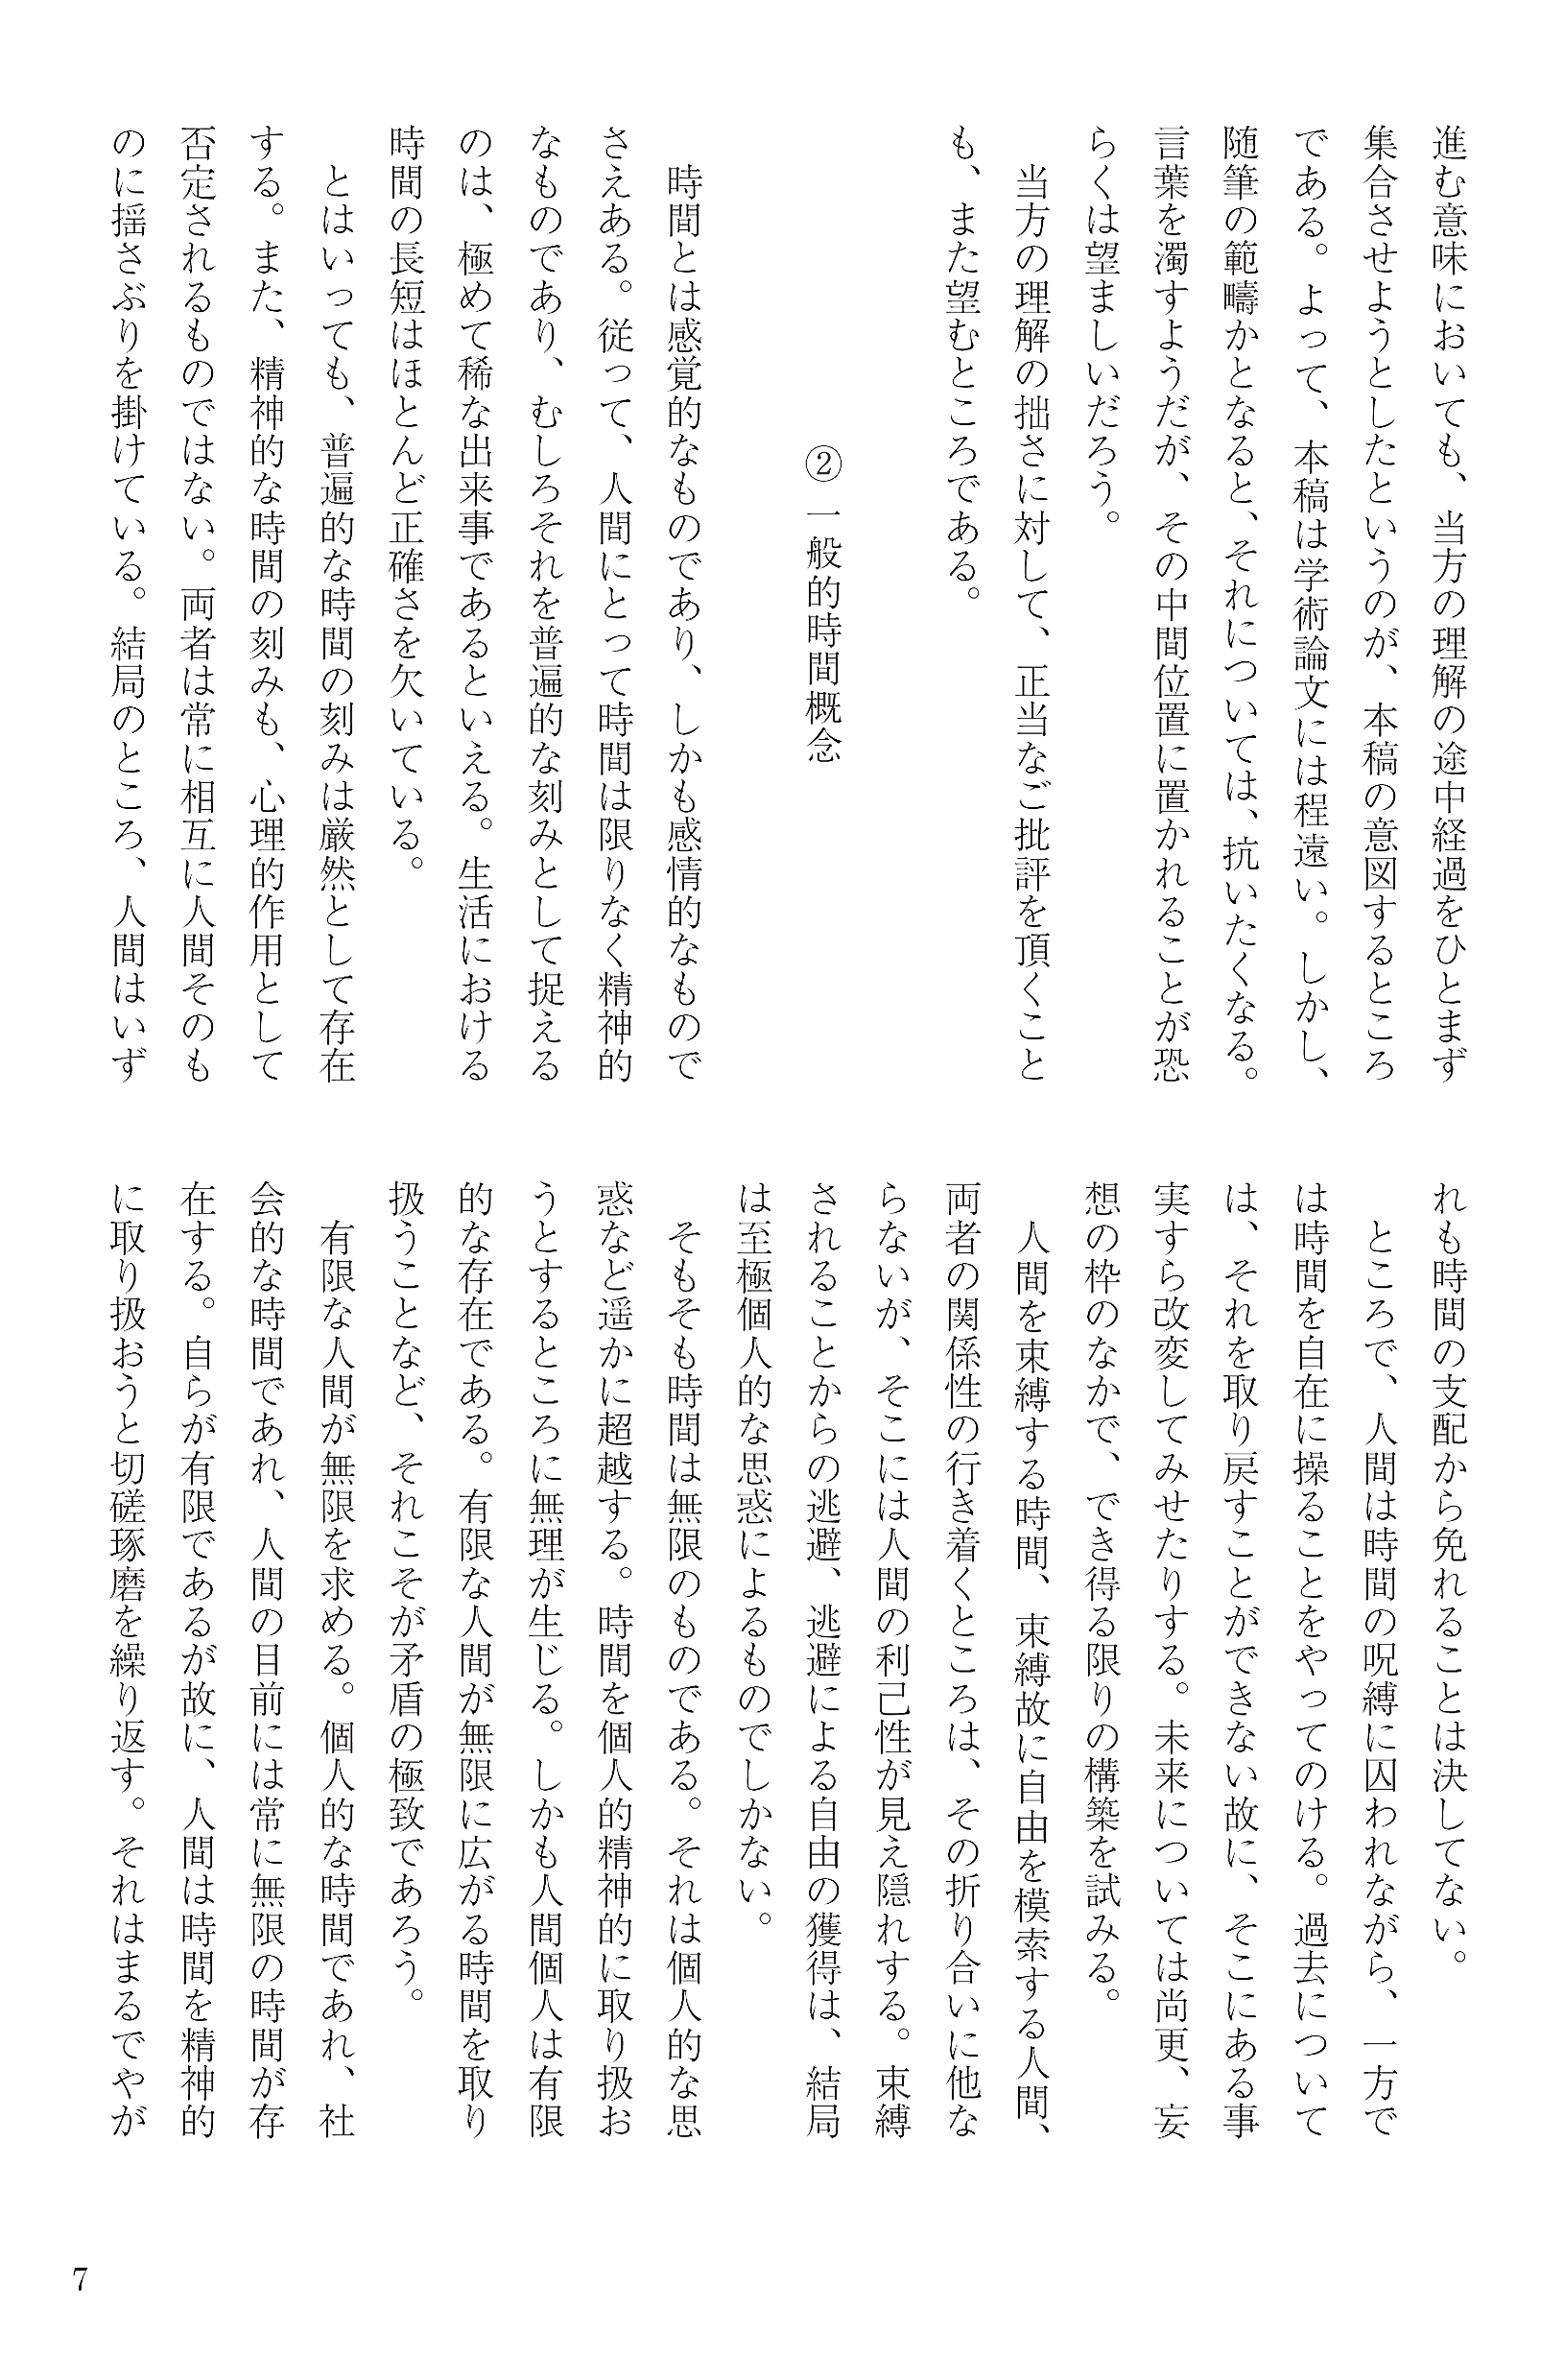 進む意味においても、当方の理解の途中経過をひとまず
集合させようとしたというのが、本稿の意図するところ
である。よって、本稿は学術論文には程遠い。しかし、
随筆の範疇かとなると、それについては、抗いたくなる。
言葉を濁すようだが、その中間位置に置かれることが恐
らくは望ましいだろう。
　当方の理解の拙さに対して、正当なご批評を頂くこと
も、また望むところである。
②一般的時間概念
　時間とは感覚的なものであり、しかも感情的なもので
さえある。従って、人間にとって時間は限りなく精神的
なものであり、むしろそれを普遍的な刻みとして捉える
のは、極めて稀な出来事であるといえる。生活における
時間の長短はほとんど正確さを欠いている。
　とはいっても、普遍的な時間の刻みは厳然として存在
する。また、精神的な時間の刻みも、心理的作用として
否定されるものではない。両者は常に相互に人間そのも
のに揺さぶりを掛けている。結局のところ、人間はいず
れも時間の支配から免れることは決してない。
　ところで、人間は時間の呪縛に囚われながら、一方で
は時間を自在に操ることをやってのける。過去について
は、それを取り戻すことができない故に、そこにある事
実すら改変してみせたりする。未来については尚更、妄
想の枠のなかで、でき得る限りの構築を試みる。
　人間を束縛する時間、束縛故に自由を模索する人間、
両者の関係性の行き着くところは、その折り合いに他な
らないが、そこには人間の利己性が見え隠れする。束縛
されることからの逃避、逃避による自由の獲得は、結局
は至極個人的な思惑によるものでしかない。
　そもそも時間は無限のものである。それは個人的な思
惑など遥かに超越する。時間を個人的精神的に取り扱お
うとするところに無理が生じる。しかも人間個人は有限
的な存在である。有限な人間が無限に広がる時間を取り
扱うことなど、それこそが矛盾の極致であろう。
　有限な人間が無限を求める。個人的な時間であれ、社
会的な時間であれ、人間の目前には常に無限の時間が存
在する。自らが有限であるが故に、人間は時間を精神的
に取り扱おうと切磋琢磨を繰り返す。それはまるでやが
7